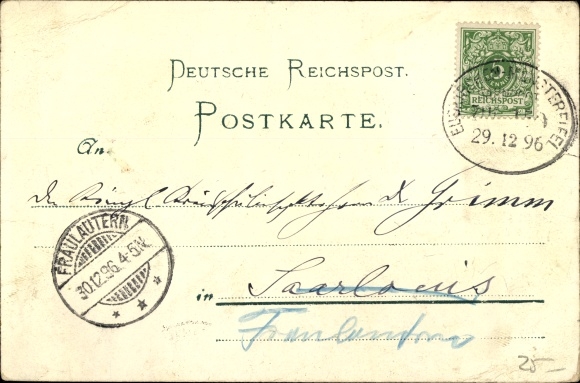 DEUTSCHE REICHSPOST.
POSTKARTE.
5
REICHSPOST
MÜNSTEREIFEL
29.12 96
An
Kgl Kreisschulinspektor Herrn Dr Grimm
FRAULAUTERN
30.12.96. 4-5.N.
in Saarlouis
Fraulautern
25-